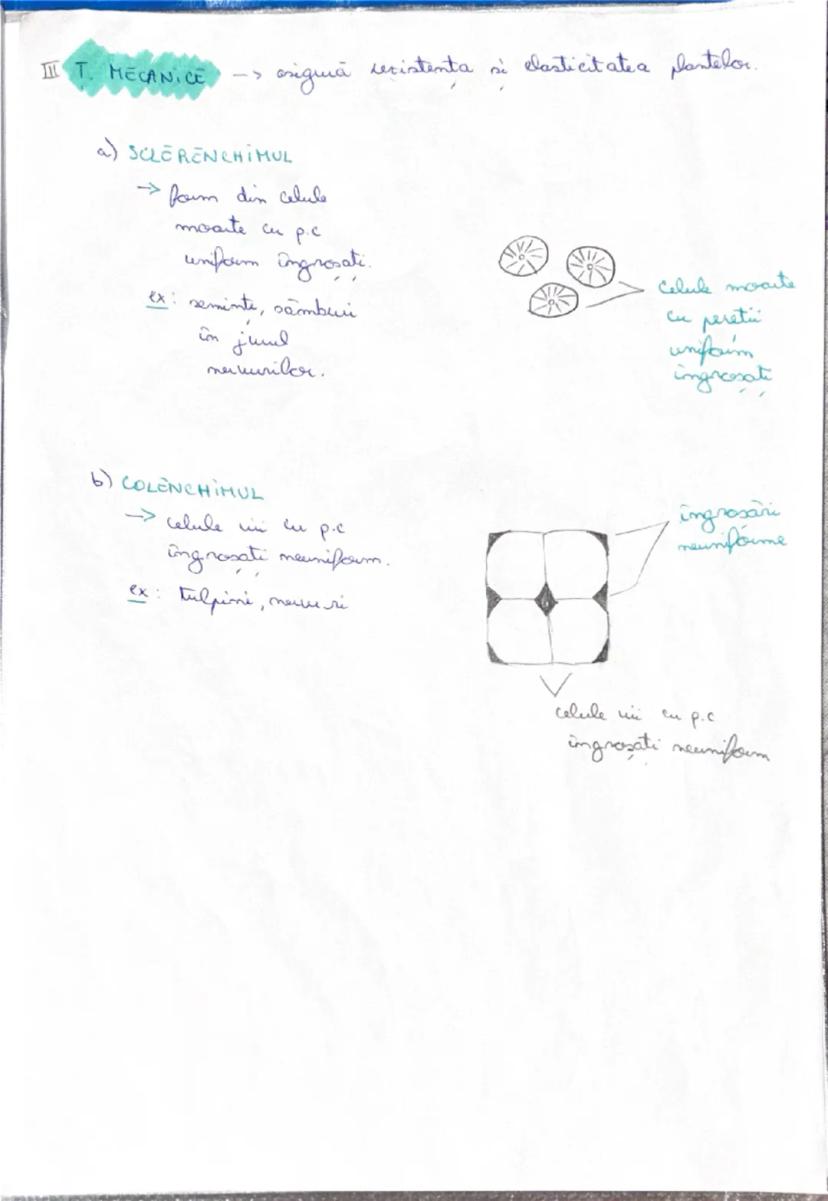 III Ț. MECANICE -> asigură rezistența și elasticitatea plantelor.
a) SCLERENCHIMUL
-> form din celule
moarte cu p.c
uniform îngroșați.
ex: semințe, sâmburi
în jurul
nervurilor.
celule moarte
cu pereții
uniform
îngroșați
b) COLENCHIMUL
-> celule vii cu p.c
îngroșați neuniform.
ex: tulpini, nervuri
îngroșări
neuniforme
celule vii cu p.c
îngroșați neuniform